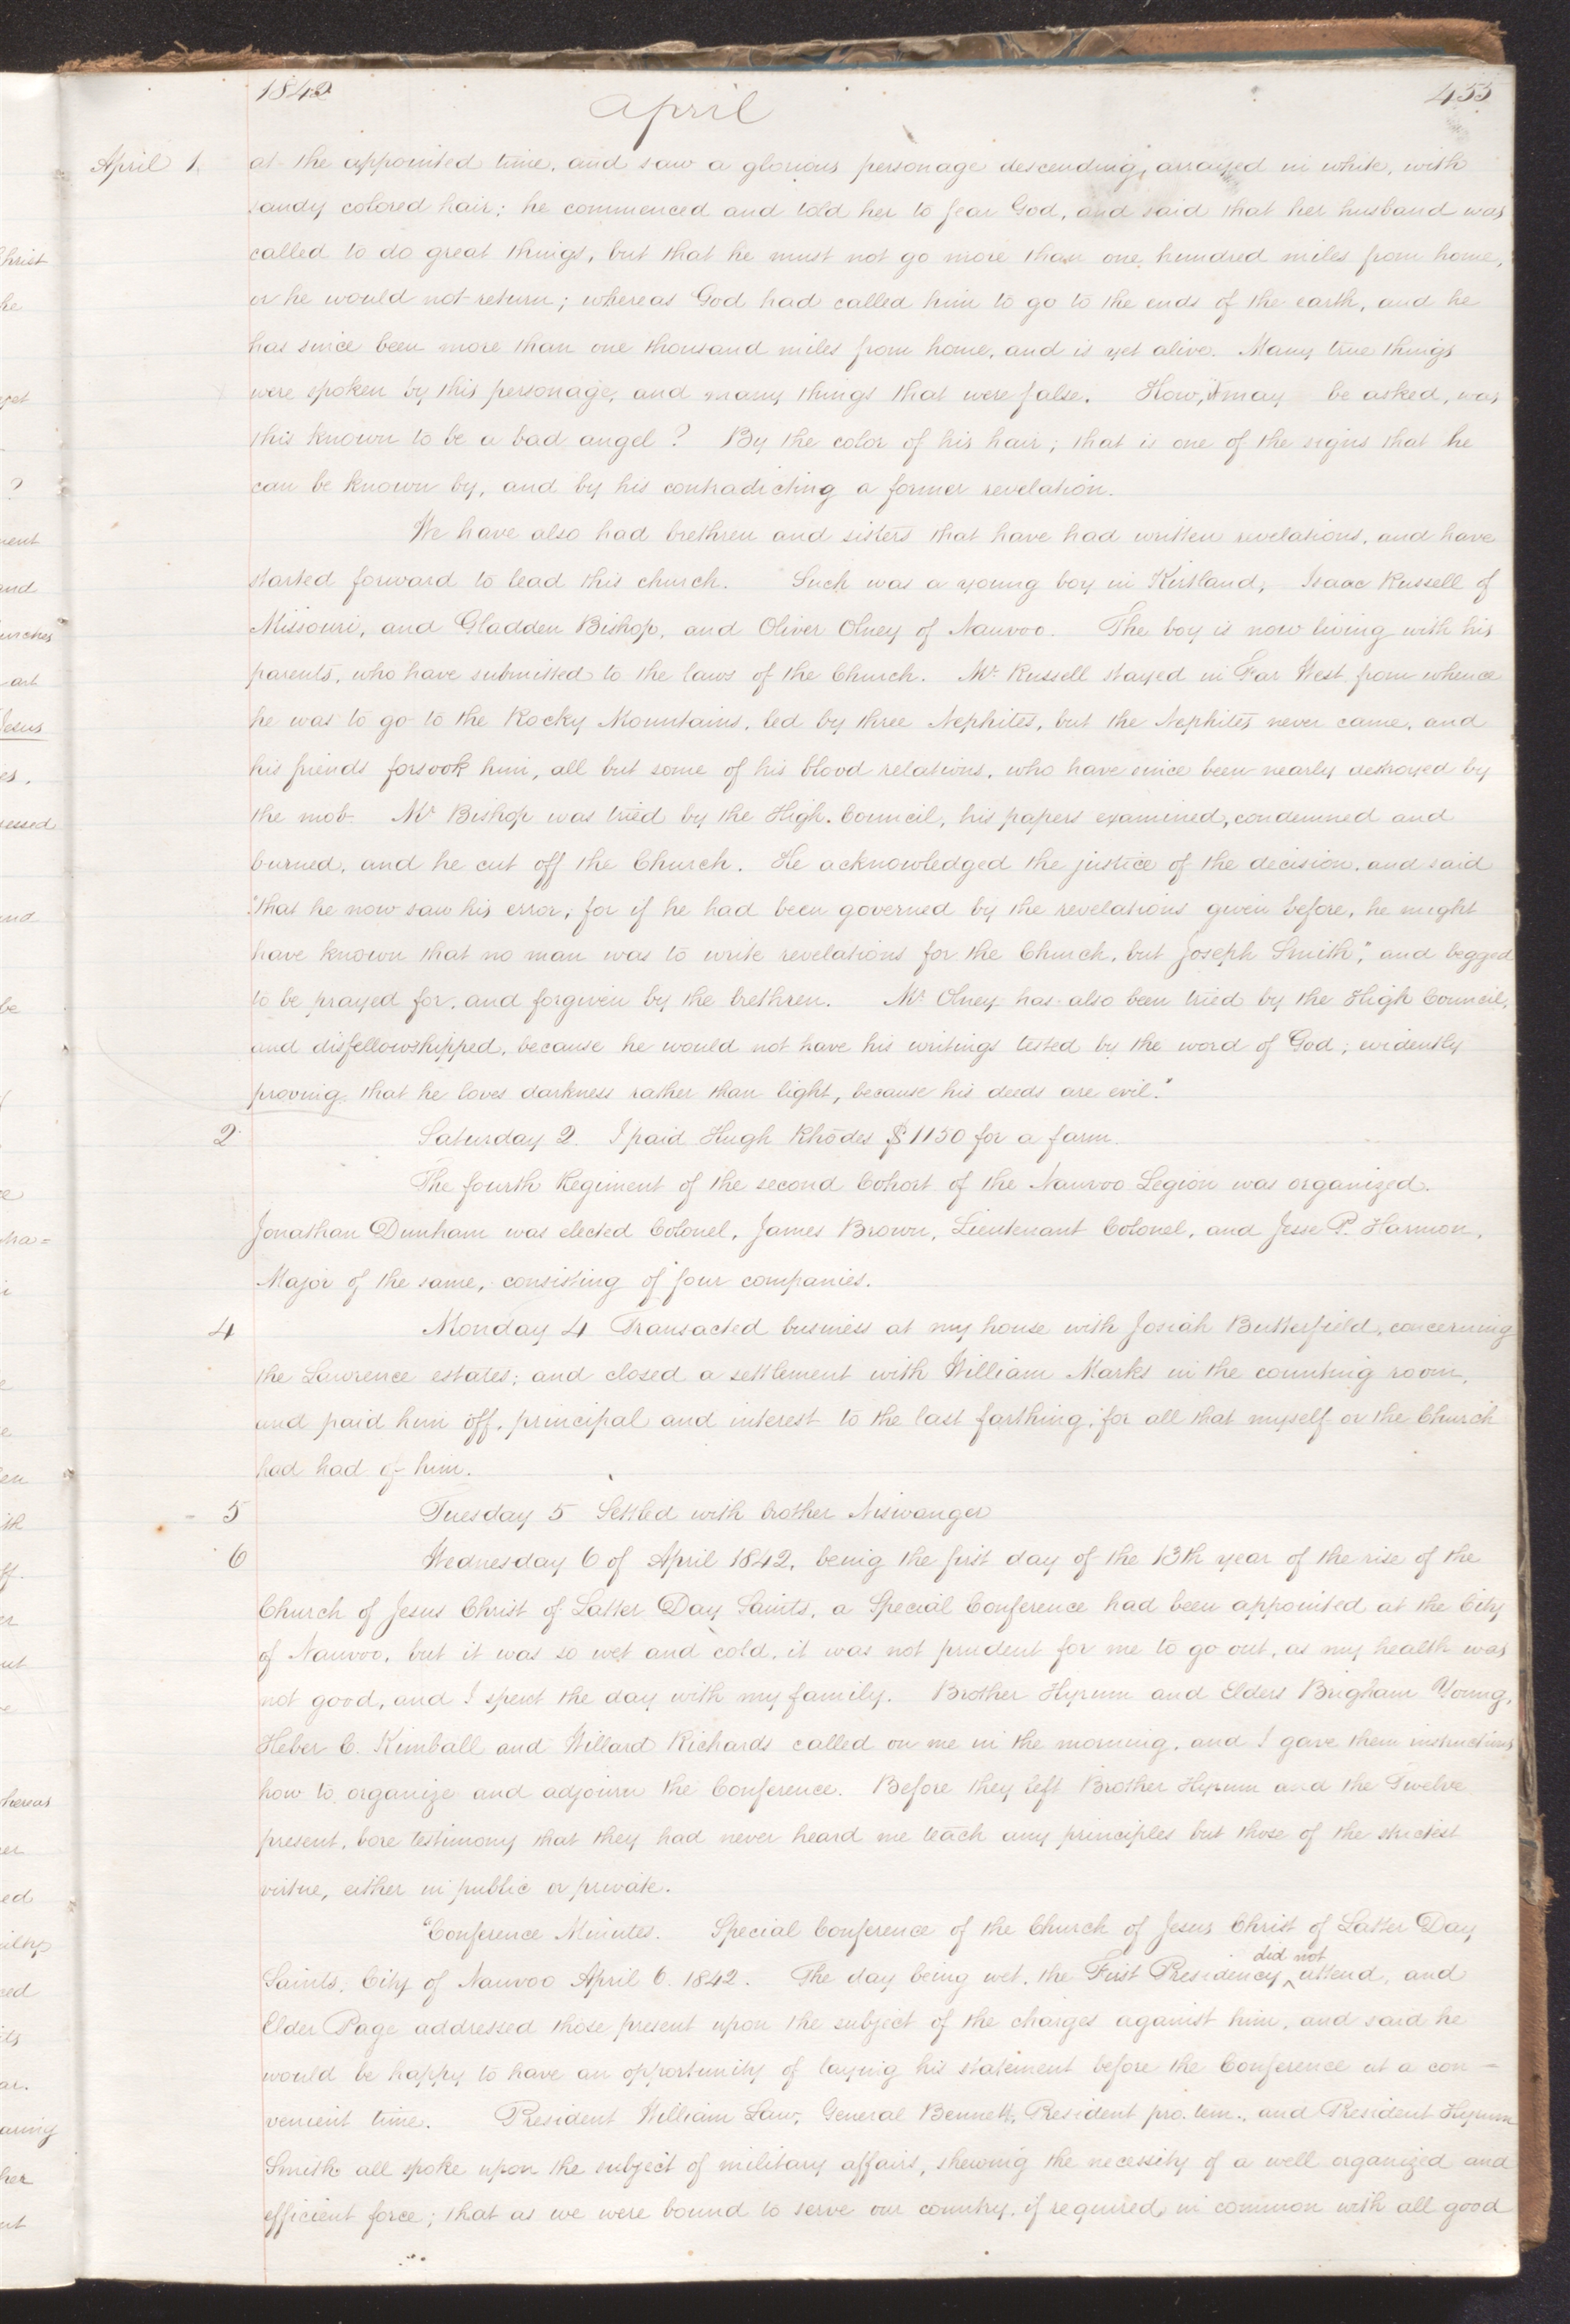 1842 April 455
April 1. at the appointed time, and saw a glorious personage descending, arrayed in white, with
sandy colored hair; he commenced and told her to fear God, and said that her husband was
called to do great things, but that he must not go more than one hundred miles from home,
or he would not return; whereas God had called him to go to the ends of the earth, and he
has since been more than one thousand miles from home, and is yet alive. Many true things
were spoken by this personage, and many things that were false. How, it may be asked, was
this known to be a bad angel? By the color of his hair; that is one of the signs that he
can be known by, and by his contradicting a former revelation.
We have also had brethren and sisters that have had written revelations, and have
started forward to lead this church. Such was a young boy in Kirtland, Isaac Russell of
Missouri, and Gladden Bishop, and Oliver Olney of Nauvoo. The boy is now living with his
parents, who have submitted to the laws of the Church. Mr. Russell stayed in Far West, from whence
he was to go to the Rocky Mountains, led by three Nephites, but the Nephites never came, and
his friends forsook him, all but some of his blood relations, who have since been nearly destroyed by
the mob. Mr Bishop was tried by the High Council, his papers examined, condemned and
burned, and he cut off the Church. He acknowledged the justice of the decision, and said
"that he now saw his error, for if he had been governed by the revelations given before, he might
have known that no man was to write revelations for the Church, but Joseph Smith," and begged
to be prayed for, and forgiven by the brethren. Mr. Olney has also been tried by the High Council,
and disfellowshipped, because he would not have his writings tested by the word of God; evidently
proving that he loves darkness rather than light, because his deeds are evil."
2 Saturday 2. I paid Hugh Rhodes $1150 for a farm.
The fourth Regiment of the second Cohort of the Nauvoo Legion was organized.
Jonathan Dunham was elected Colonel, James Brown, Lieutenant Colonel, and Jesse P. Harmon,
Major of the same, consisting of four companies.
4 Monday 4 Transacted business at my house with Josiah Butterfield, concerning
the Lawrence estates; and closed a settlement with William Marks in the counting room,
and paid him off, principal and interest to the last farthing, for all that myself or the Church
had had of him.
5 Tuesday 5 Settled with brother Niswanger
6 Wednesday 6 of April 1842, being the first day of the 13th year of the rise of the
Church of Jesus Christ of Latter Day Saints, a Special Conference had been appointed at the City
of Nauvoo, but it was so wet and cold, it was not prudent for me to go out, as my health was
not good, and I spent the day with my family. Brother Hyrum and Elders Brigham Young,
Heber C. Kimball and Willard Richards called on me in the morning, and I gave them instructions
how to organize and adjourn the Conference. Before they left Brother Hyrum and the Twelve
present, bore testimony that they had never heard me teach any principles but those of the strictest
virtue, either in public or private.
"Conference Minutes. Special Conference of the Church of Jesus Christ of Latter Day
Saints, City of Nauvoo April 6. 1842. The day being wet, the First Presidency ^ did not attend, and
Elder Page addressed those present upon the subject of the charges against him, and said he
would be happy to have an opportunity of laying his statement before the Conference at a con-
venient time. President William Law, General Bennett, President pro. tem., and President Hyrum
Smith all spoke upon the subject of military affairs, shewing the necessity of a well organized and
efficient force; that as we were bound to serve our country, if required, in common with all good